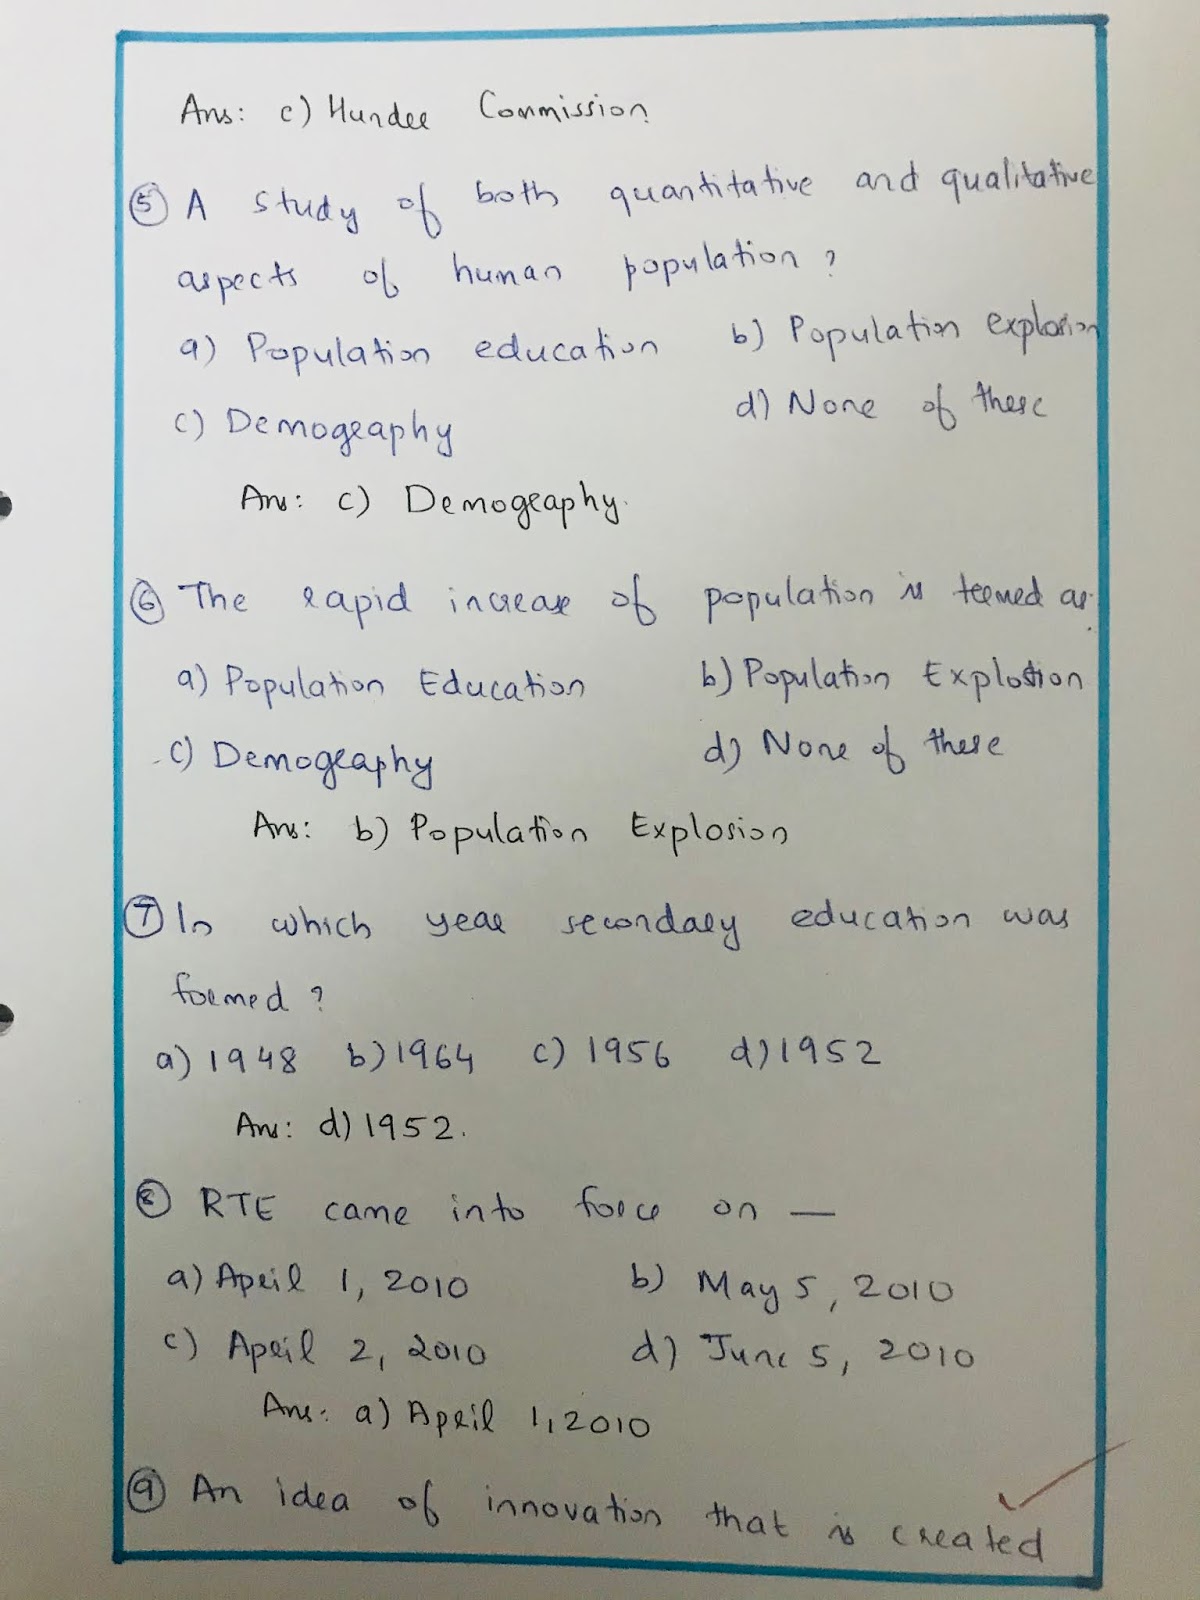 Ans: c) Hundee Commission
⑤ A study of both quantitative and qualitative
aspects of human population ?
a) Population education b) Population explosion
c) Demography d) None of these
Ans: c) Demography.
⑥ The rapid increase of population is teemed as
a) Population Education b) Population Explosion
c) Demography d) None of these
Ans: b) Population Explosion
⑦ In which year secondary education was
formed ?
a) 1948 b) 1964 c) 1956 d) 1952
Ans: d) 1952.
⑧ RTE came into force on —
a) April 1, 2010 b) May 5, 2010
c) April 2, 2010 d) June 5, 2010
Ans: a) April 1, 2010
⑨ An idea of innovation that is created